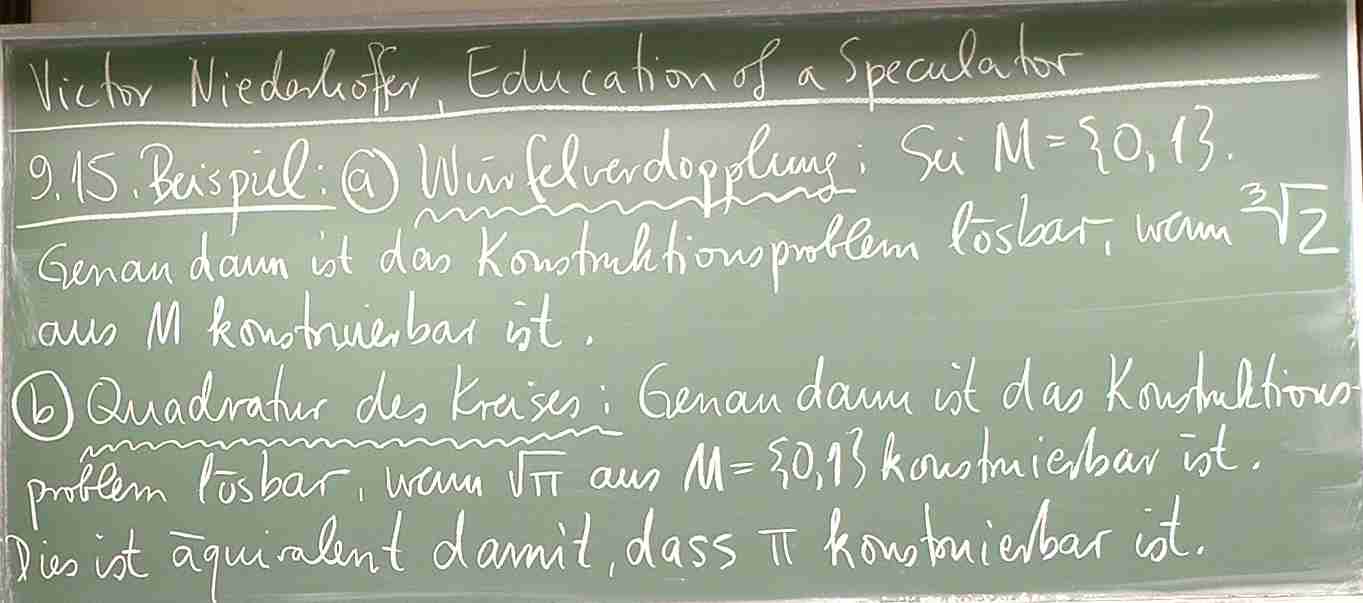 Victor Niederhoffer, Education of a Speculator
9.15. Beispiel: ⓐ Würfelverdopplung: Sei M = {0,1}.
Genau dann ist das Konstruktionsproblem lösbar, wenn ∛2
aus M konstruierbar ist.
ⓑ Quadratur des Kreises: Genau dann ist das Konstruktions-
problem lösbar, wenn √π aus M = {0,1} konstruierbar ist.
Dies ist äquivalent damit, dass π konstruierbar ist.